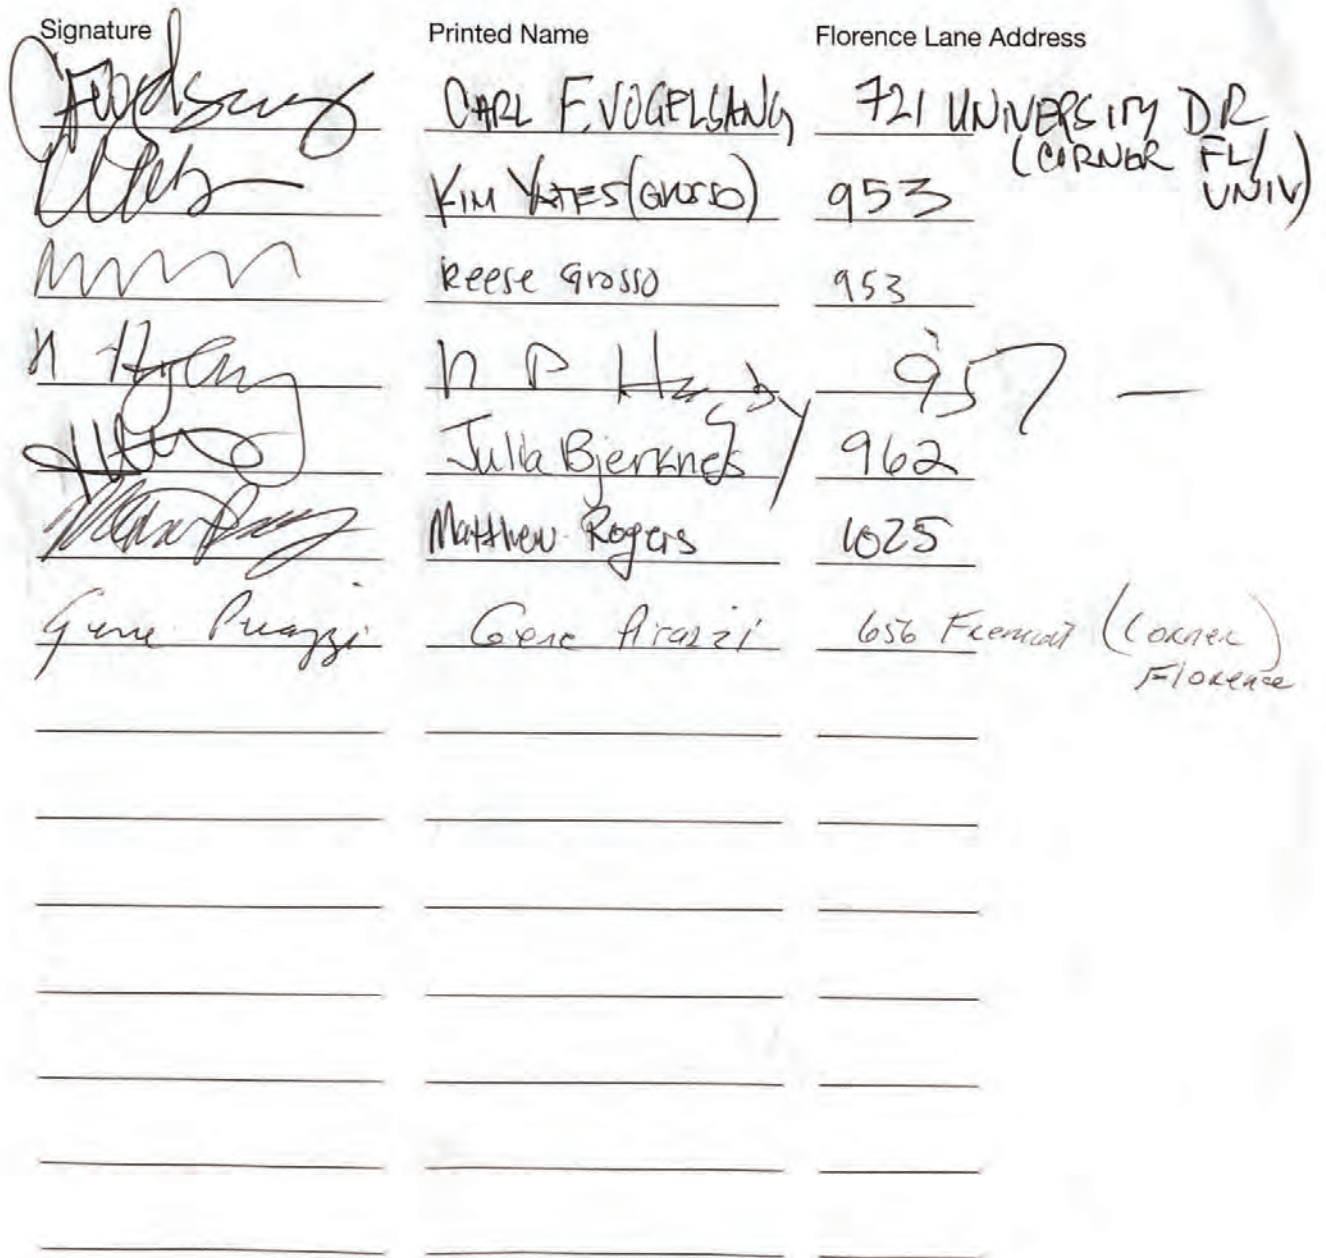 Signature Printed Name Florence Lane Address
CARL F. VOGELSANG 721 UNIVERSITY DR
(CORNER FL/
KIM YATES (GROSSO) 953 UNIV)
Reese Grosso 953
N P 957 —
Julia Bjerknes 962
Matthew Rogers 1025
Gene Pirazzi Gene Pirazzi 656 Fremont (Corner)
Florence